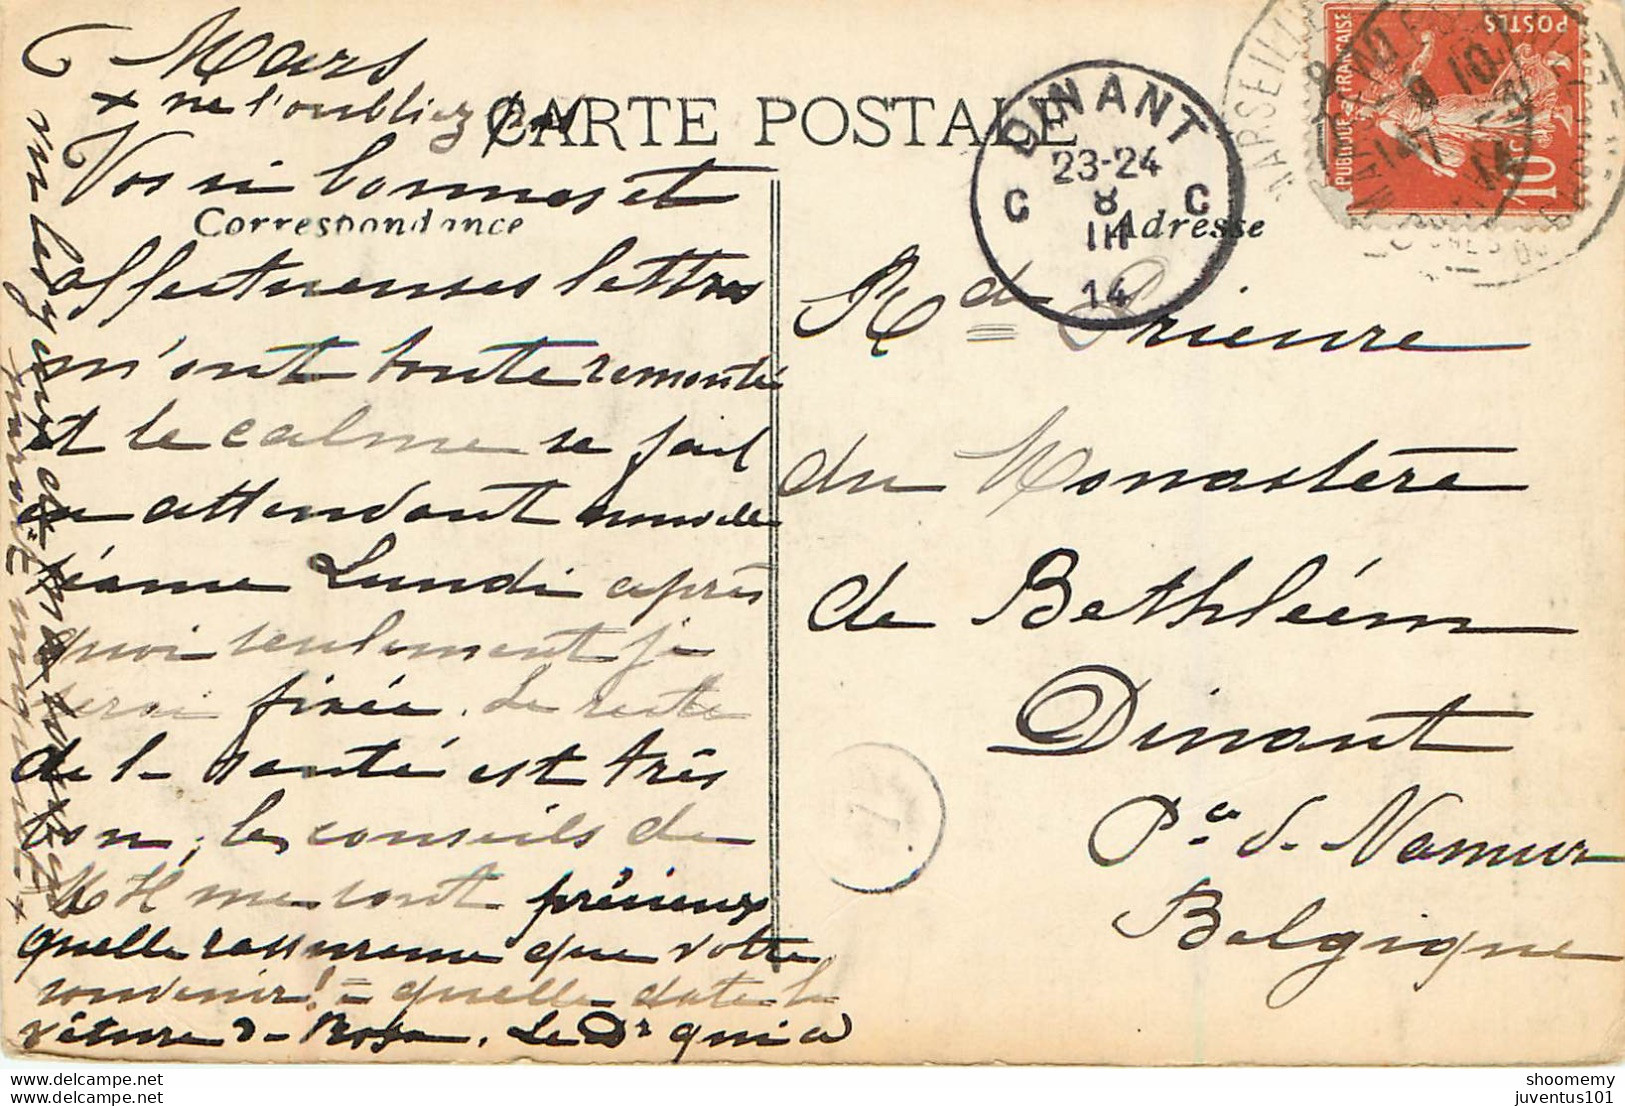 6 Mars
+ ne l'oubliez pas
CARTE POSTALE
Correspondance
Adresse
Vos si bonnes et
affectueuses lettres
m'ont toute remontée
et le calme se fait
en attendant nouvelle
séance Lundi après
quoi seulement je
serai fixée. Le reste
de la santé est très
bon, les conseils de
M H me sont précieux
quelle rassurance que votre
souvenir! = quelle date la
vêture de Rosa. Le Dr qui a
vu les yeux de
MARSEILLE
DINANT
23-24
C 8 C
III
14
REPUBLIQUE FRANÇAISE
POSTES
10 C
Rde Prieure
du Monastère
de Bethléem
Dinant
Pce de Namur
Belgique
shoomemy
juventus101